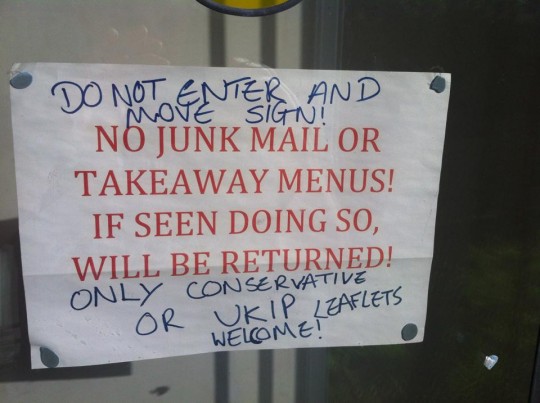 DO NOT ENTER AND
MOVE SIGN!
NO JUNK MAIL OR
TAKEAWAY MENUS!
IF SEEN DOING SO,
WILL BE RETURNED!
ONLY CONSERVATIVE
OR UKIP LEAFLETS
WELCOME!